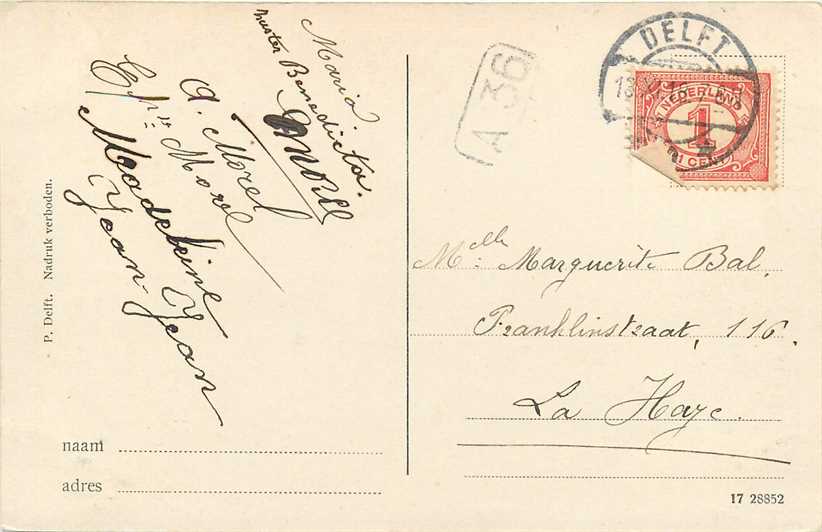 Maria
Benedicta.
A. Morel
Morel
Madeleine
Jean-Jean
P. Delft. Nadruk verboden.
naam
adres
A 36
DELFT
NEDERLAND
1
1 CENT
Melle Marguerite Bal.
Franklinstraat, 116.
La Haye.
17 28852